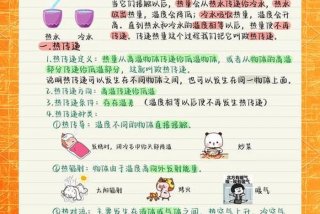 当它们接触以后，热量会从热水传递给冷水，热水
放出热量，温度会降低；冷水吸收热量，温度会升
高。直到热水和冷水的温度相等以后，热量便不再
热水 冷水
传递。热量传递这个过程我们把它叫做热传递。
一.热传递
1.热传递定义：热量从高温物体传递给低温物体，或者从物体的高温
部分传递给低温部分，这就叫做热传递。
说明热传递可以发生在不同的物体上，也可以发生在同一物体上面。
2.热传递方向：高温传递给低温
3.热传递条件：存在温差（温度相等以后便不再发生热传递）
4.热传递种类：
①热传导：温度不同的物体直接接触。
发烧时，用冷毛巾 炒菜
②热辐射：物体由于温度高向外发射能量。
太阳辐射 烤火 暖气
③热对流：主要发生在液体或气体中，热空气上升，冷